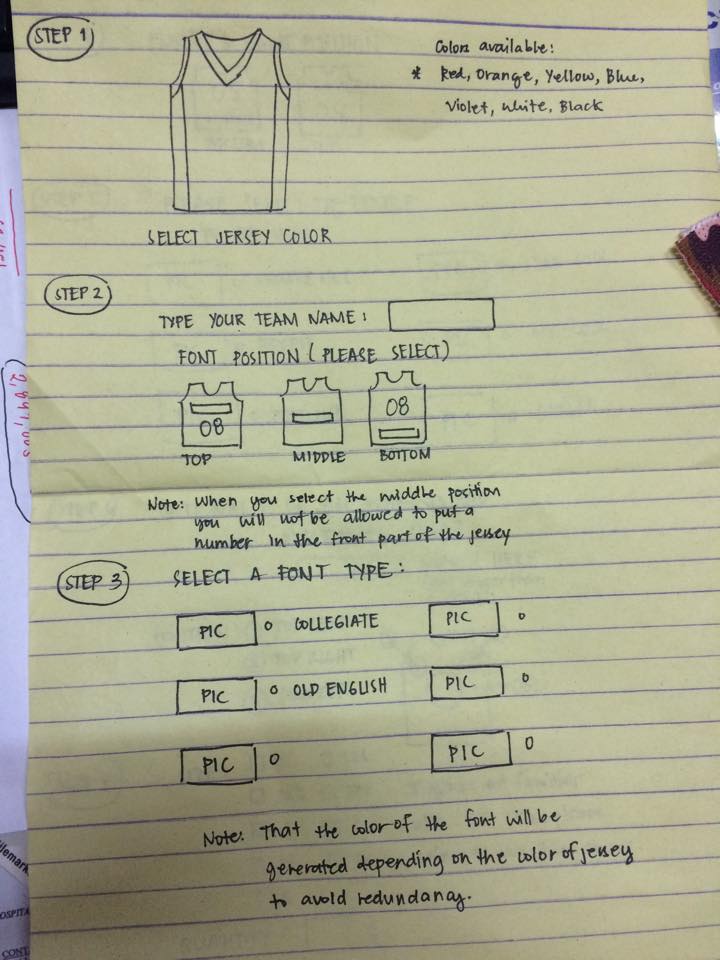 STEP 1
Colors available:
* Red, Orange, Yellow, Blue,
Violet, White, Black
SELECT JERSEY COLOR
STEP 2
TYPE YOUR TEAM NAME:
FONT POSITION (PLEASE SELECT)
08
08
TOP MIDDLE BOTTOM
Note: When you select the middle position
you will not be allowed to put a
number in the front part of the jersey
STEP 3 SELECT A FONT TYPE:
PIC o COLLEGIATE PIC o
PIC o OLD ENGLISH PIC o
PIC o PIC o
Note: That the color of the font will be
generated depending on the color of jersey
to avoid redundancy.